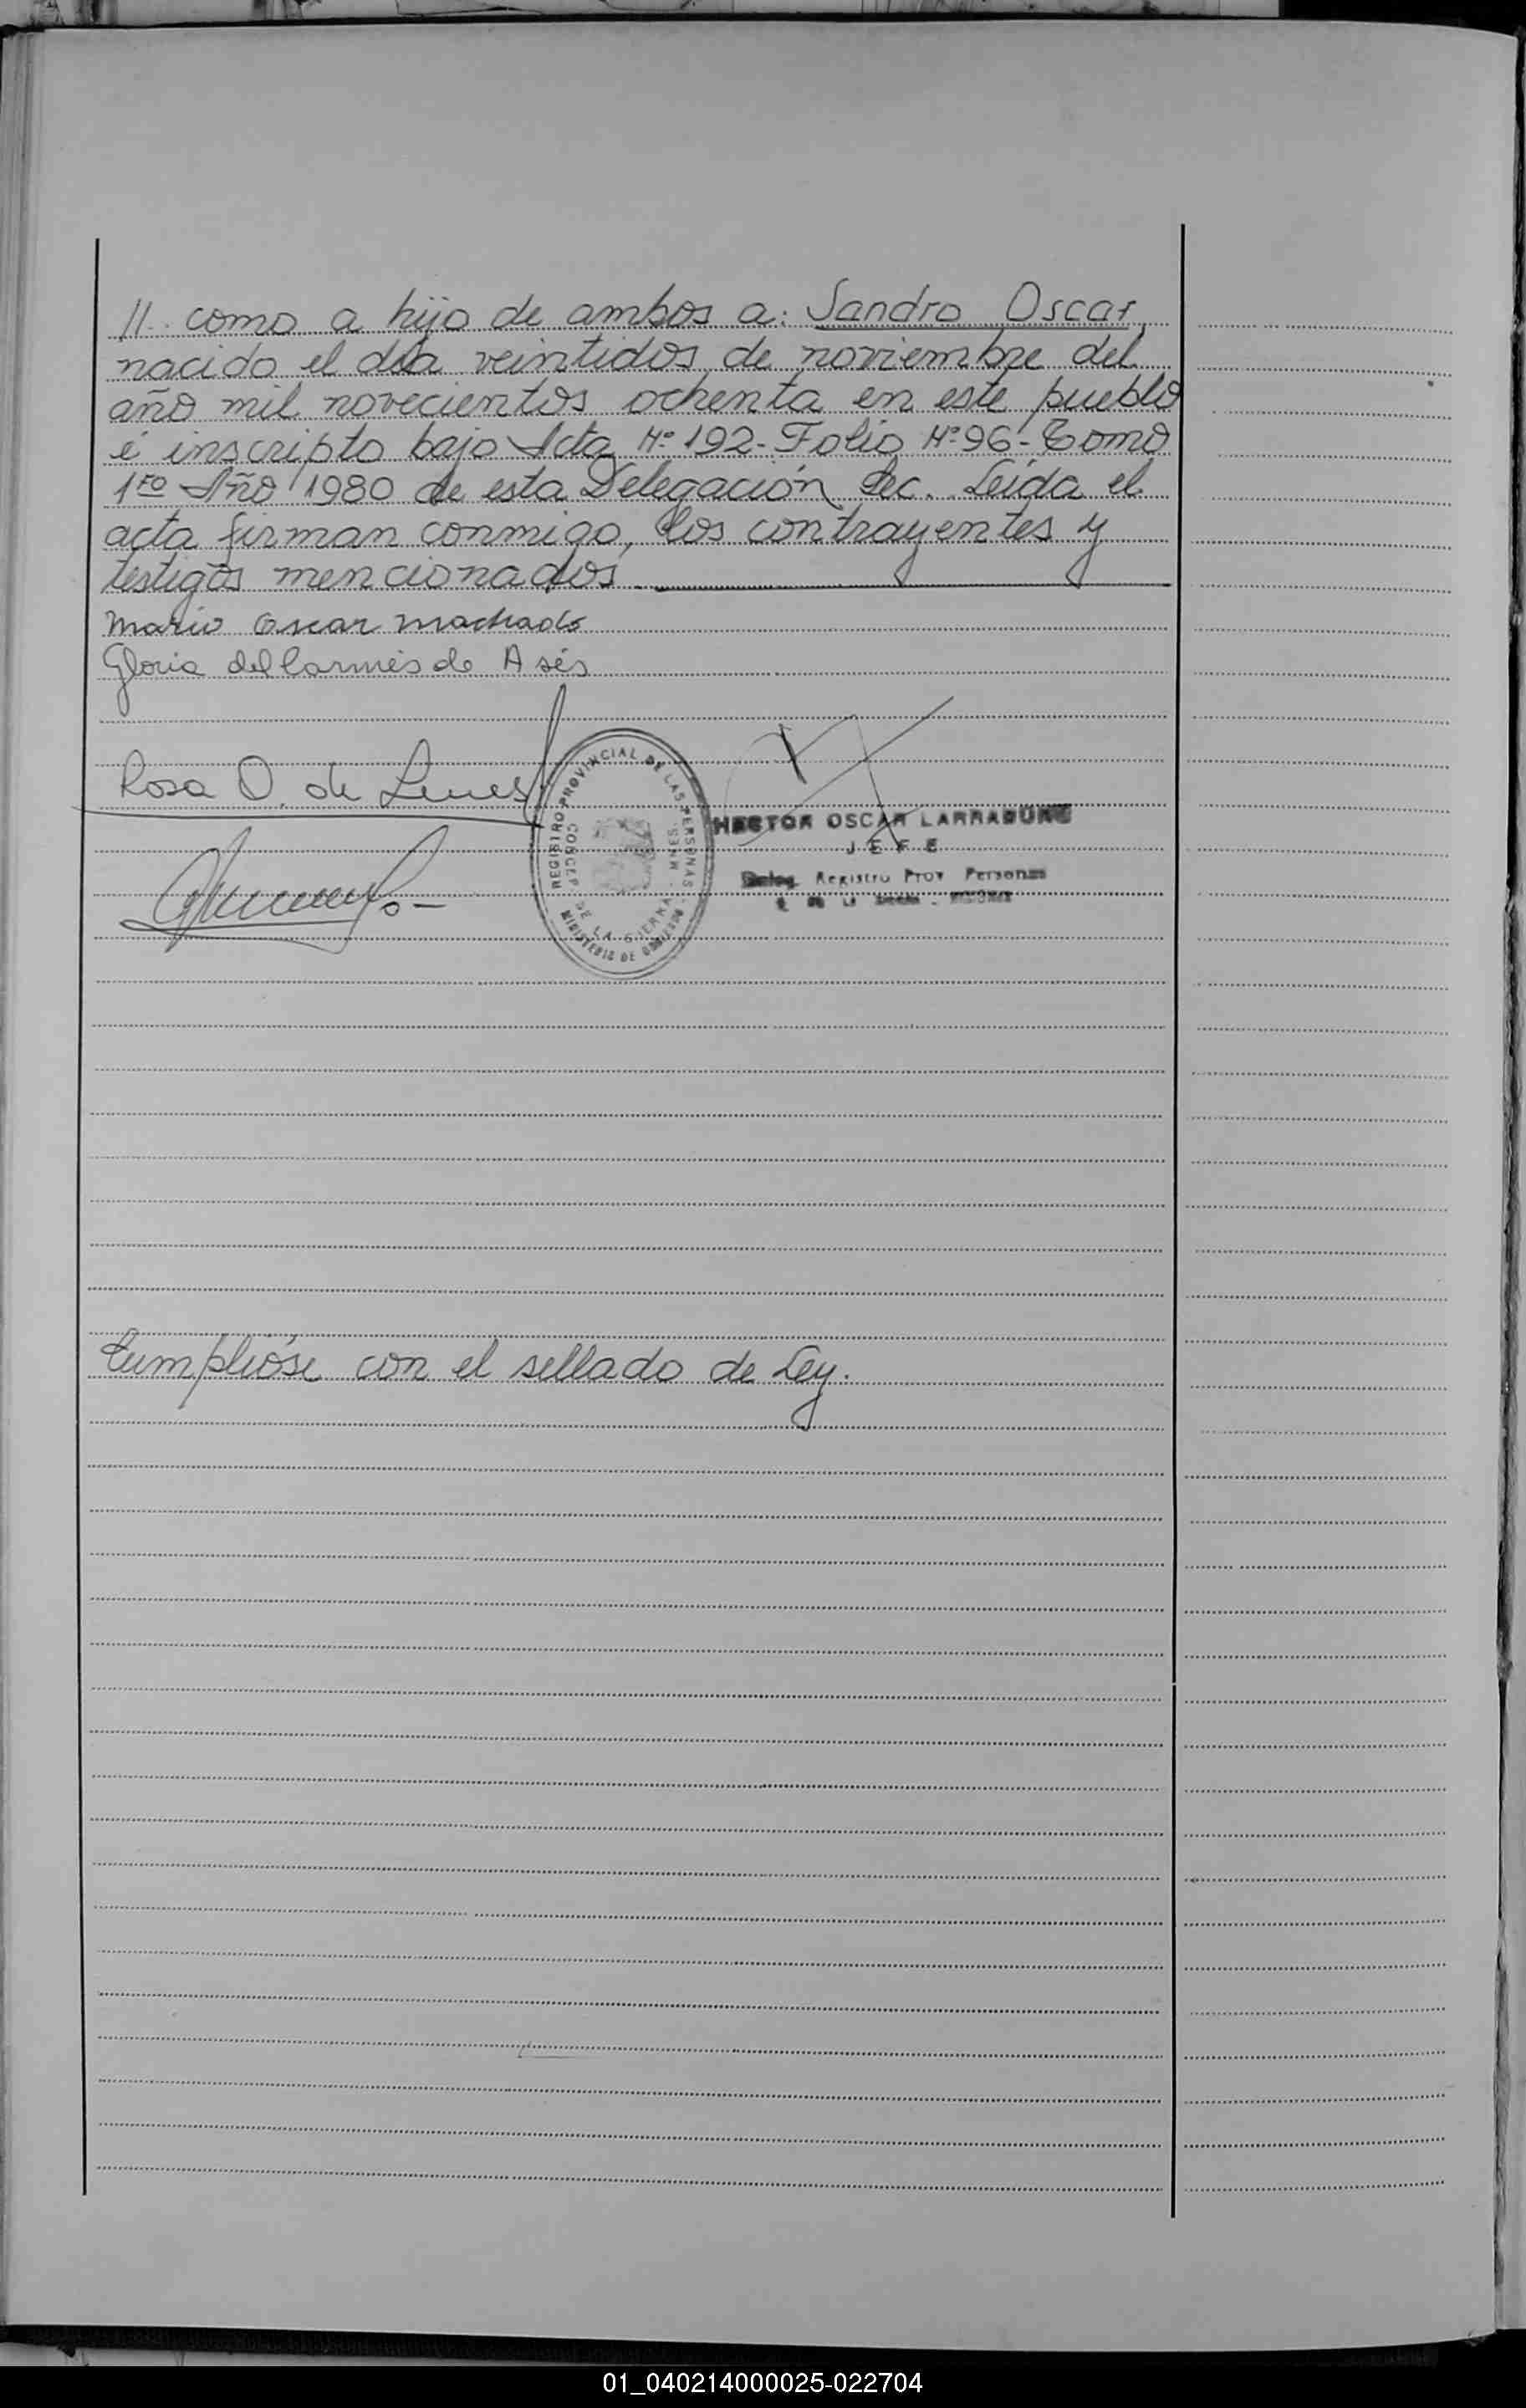 // como a hijo de ambos a: Sandro Oscar,
nacido el día veintidos de noviembre del
año mil novecientos ochenta en este pueblo
é inscripto bajo Acta Nº 192- Folio Nº 96- Tomo
1ro Año 1980 de esta Delegación Sec. Leída el
acta firman conmigo, los contrayentes y
testigos mencionados.
Mario Oscar Machado
Gloria del Carmes de Asés
Rosa O. de
REGISTRO PROVINCIAL DE LAS PERSONAS
CONCEP. DE LA SIERRA - MNES.
MINISTERIO DE GOBIERNO
HECTOR OSCAR
JEFE
Deleg. Registro Prov Personas
C. DE LA SIERRA - MISIONES
Cumplióse con el sellado de Ley.
01_040214000025-022704